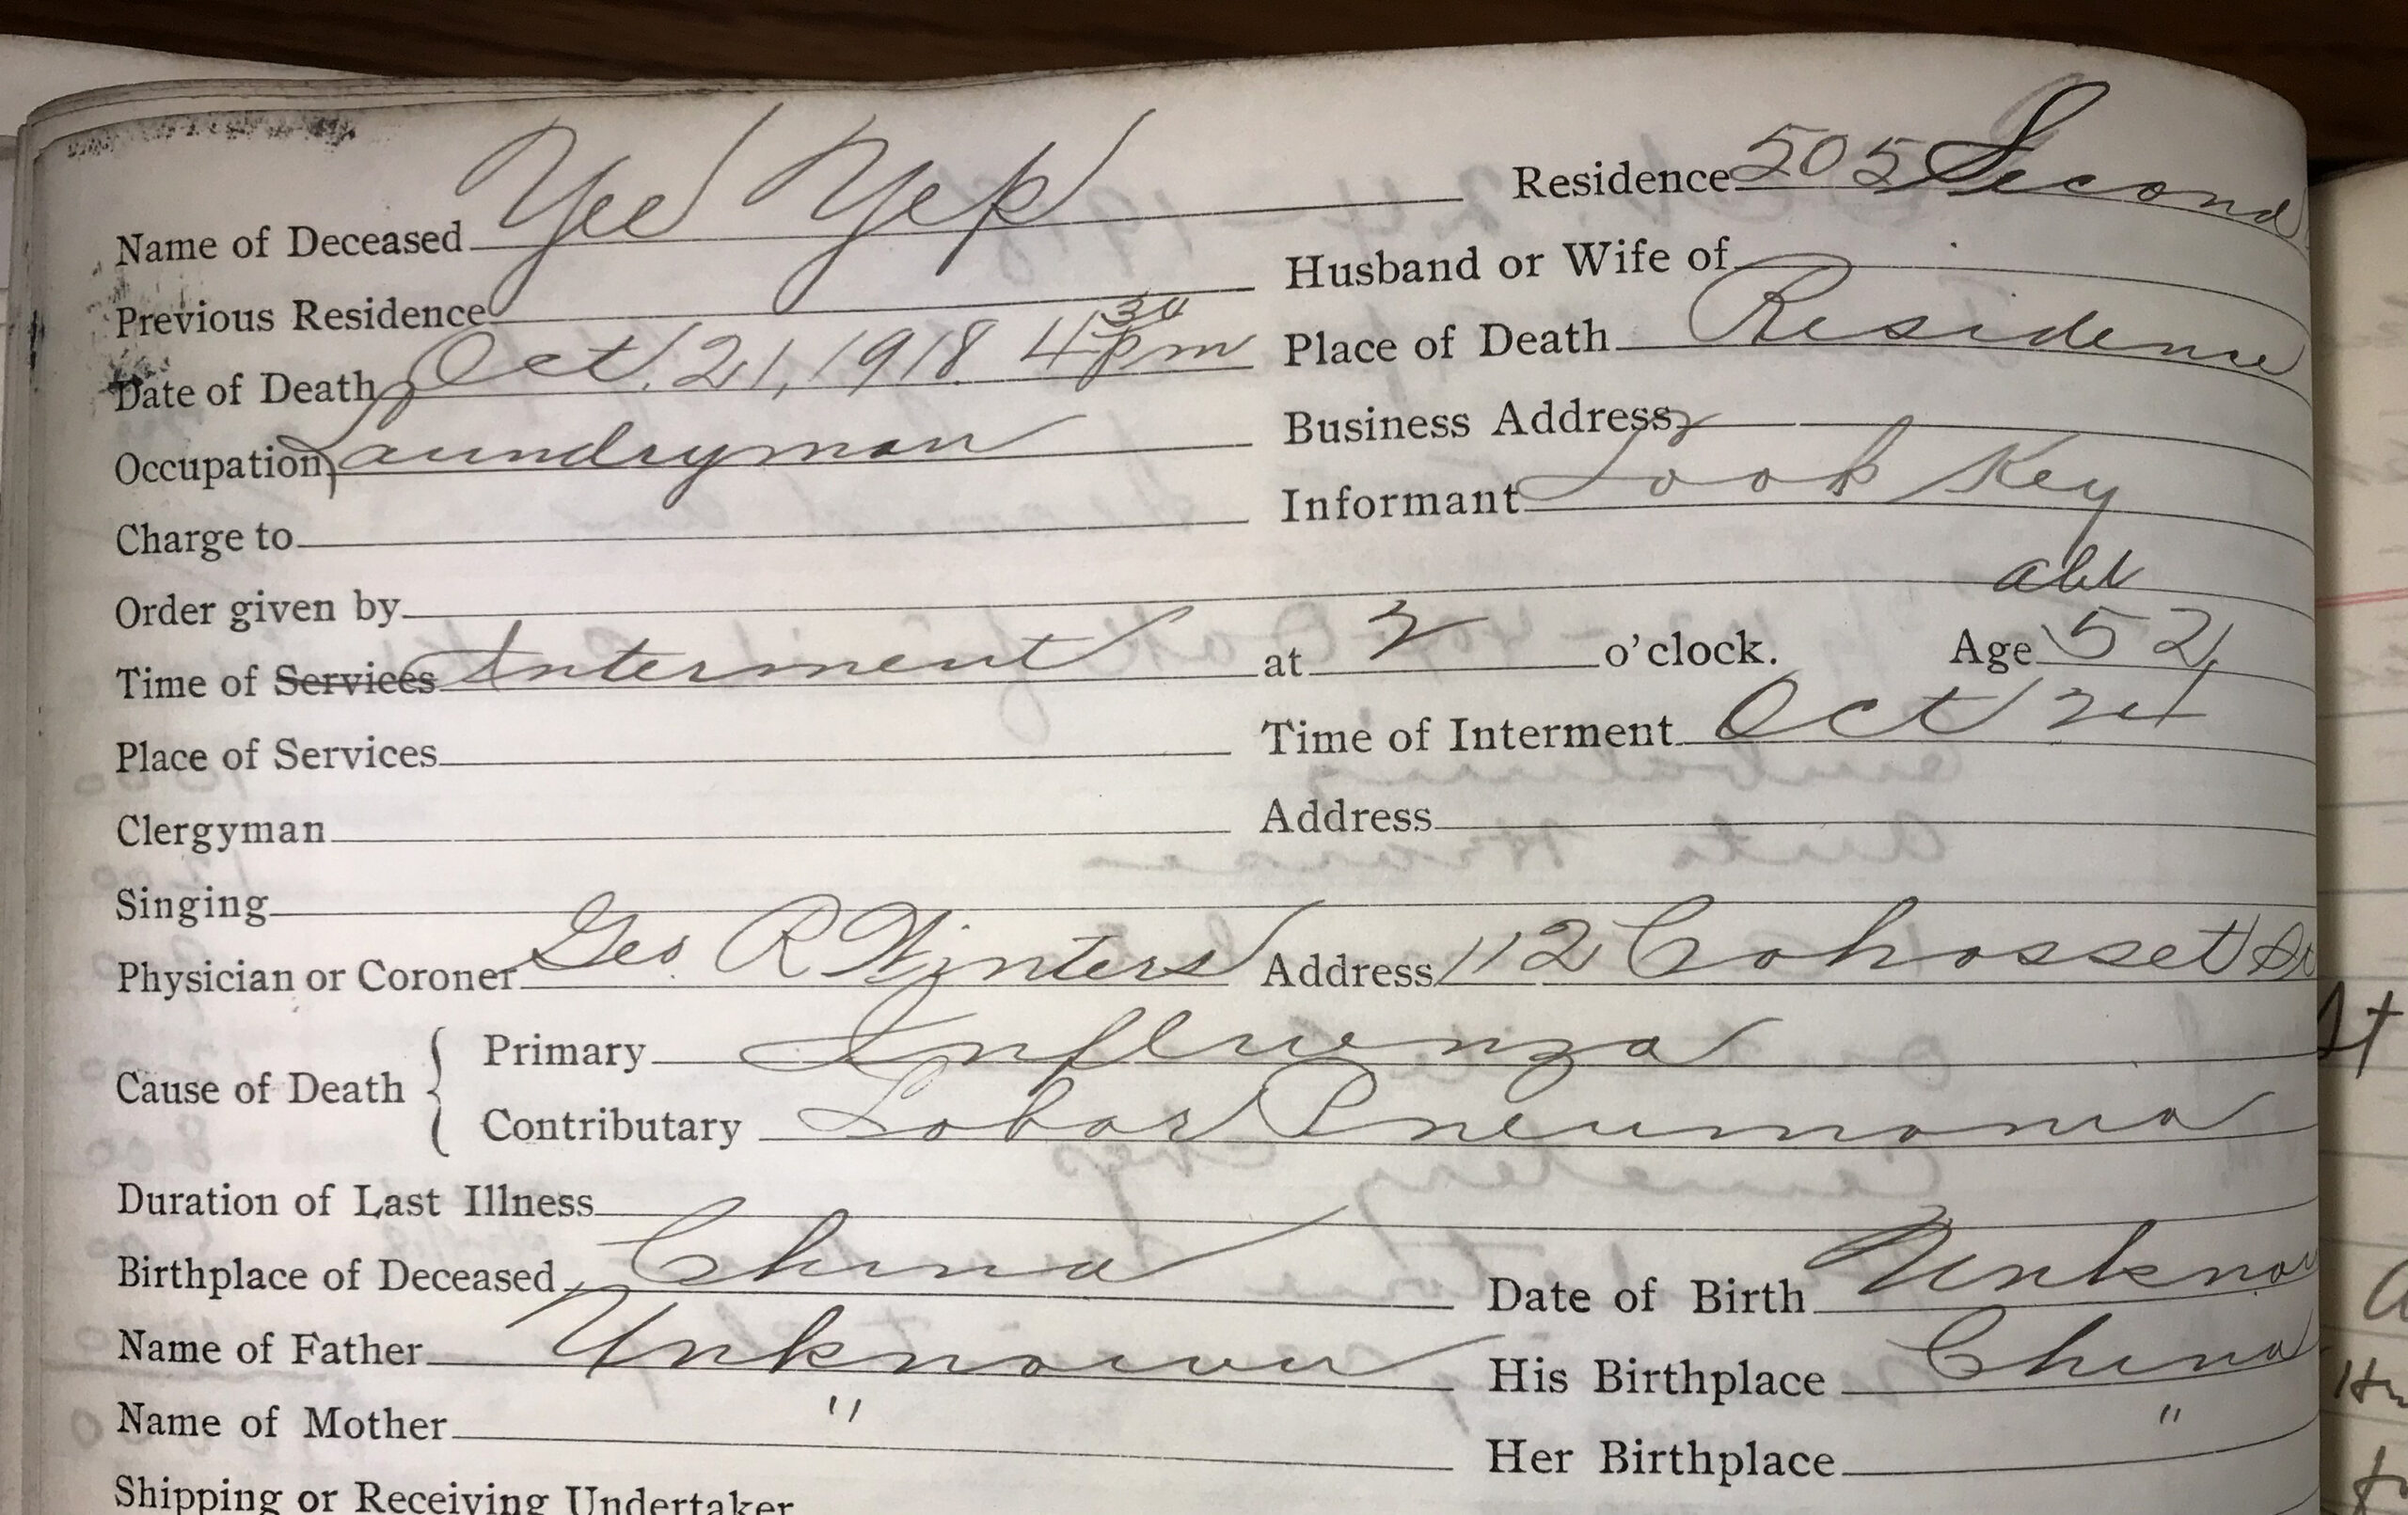 Name of Deceased Yee Yep Residence 505 Second
Previous Residence Husband or Wife of
Date of Death Oct. 21, 1918 4 30 pm Place of Death Residence
Occupation Laundryman Business Address
Charge to Informant Look Key
Order given by abt
Time of Services Interment at 2 o'clock. Age 52
Place of Services Time of Interment Oct 24
Clergyman Address
Singing
Physician or Coroner Geo R Winters Address 112 Cohosset St
Cause of Death { Primary Influenza
Contributary Lobar Pneumonia
Duration of Last Illness
Birthplace of Deceased China Date of Birth Unknow
Name of Father Unknown His Birthplace China
Name of Mother " Her Birthplace "
Shipping or Receiving Undertaker